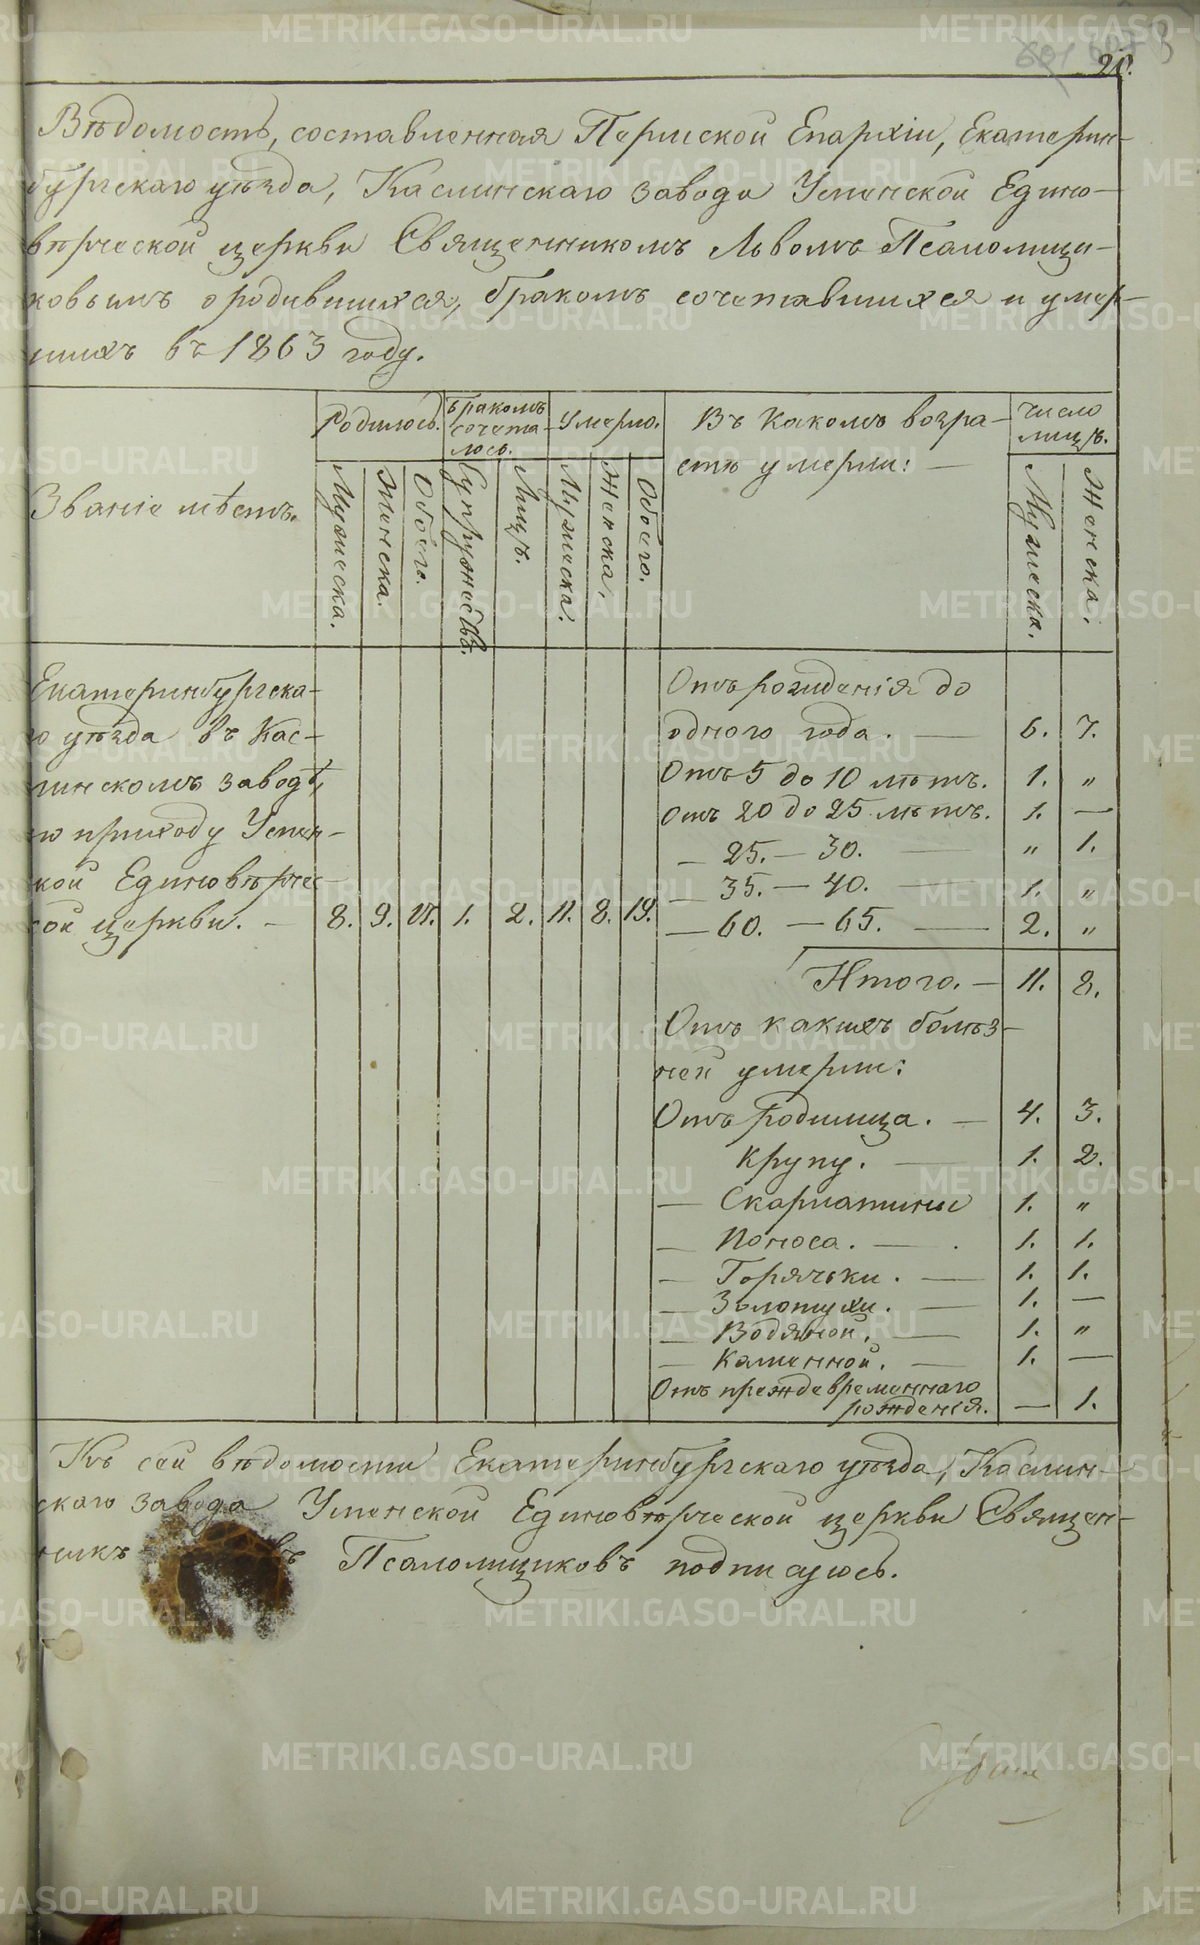 21.
Вѣдомость, составленная Пермской Епархіи, Екатерин-
бургскаго уѣзда, Каслинскаго завода Успенской Едино-
вѣрческой церкви Священникомъ Львомъ Псаломщи-
ковымъ о родившихся, бракомъ сочетавшихся и умер-
шихъ въ 1863 году.
Званіе мѣстъ.
Родилось.
Мужеска.
Женска.
Обоего.
Бракомъ
сочета-
лось.
Супружествъ.
Лицъ.
Умерло.
Мужеска.
Женска.
Обоего.
Въ какомъ возра-
стѣ умерли: —
Число
лицъ.
Мужеска.
Женска.
Екатеринбургска-
го уѣзда въ Кас-
линскомъ заводѣ,
по приходу Успен-
ской Единовѣрчес-
кой церкви. — 8. 9. 17. 1. 2. 11. 8. 19.
Отъ рожденія до
одного года. — 6. 7.
Отъ 5 до 10 лѣтъ. 1. „
Отъ 20 до 25 лѣтъ. 1. —
— 25. — 30. — „ 1.
— 35. — 40. — 1. „
— 60. — 65. — 2. „
Итого. — 11. 8.
Отъ какихъ болѣз-
ней умерли:
Отъ родимца. — 4. 3.
Крупу. — 1. 2.
— Скарлатины 1. „
— Поноса. — 1. 1.
— Горячки. — 1. 1.
— Золотухи. — 1. —
— Водяной. — 1. „
— Каменной. — 1. —
Отъ преждевременнаго
рожденія. — 1.
Къ сей вѣдомости Екатеринбургскаго уѣзда, Каслин-
скаго завода Успенской Единовѣрческой церкви Священ-
никъ Псаломщиковъ подписуюсь.
METRIKI.GASO-URAL.RU